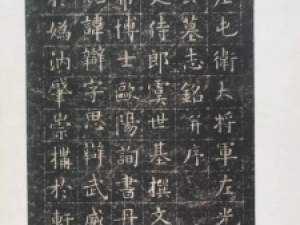 左屯衛大将軍左光
公墓志銘并序
史侍郎虞世基撰文
常博士歐陽詢書丹
諱辯字思辯武威
於媯汭肇崇構於軒